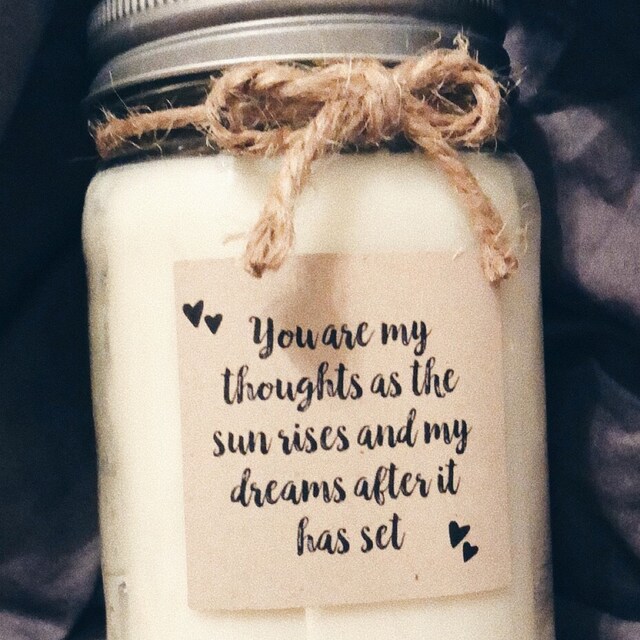 You are my
thoughts as the
sun rises and my
dreams after it
has set